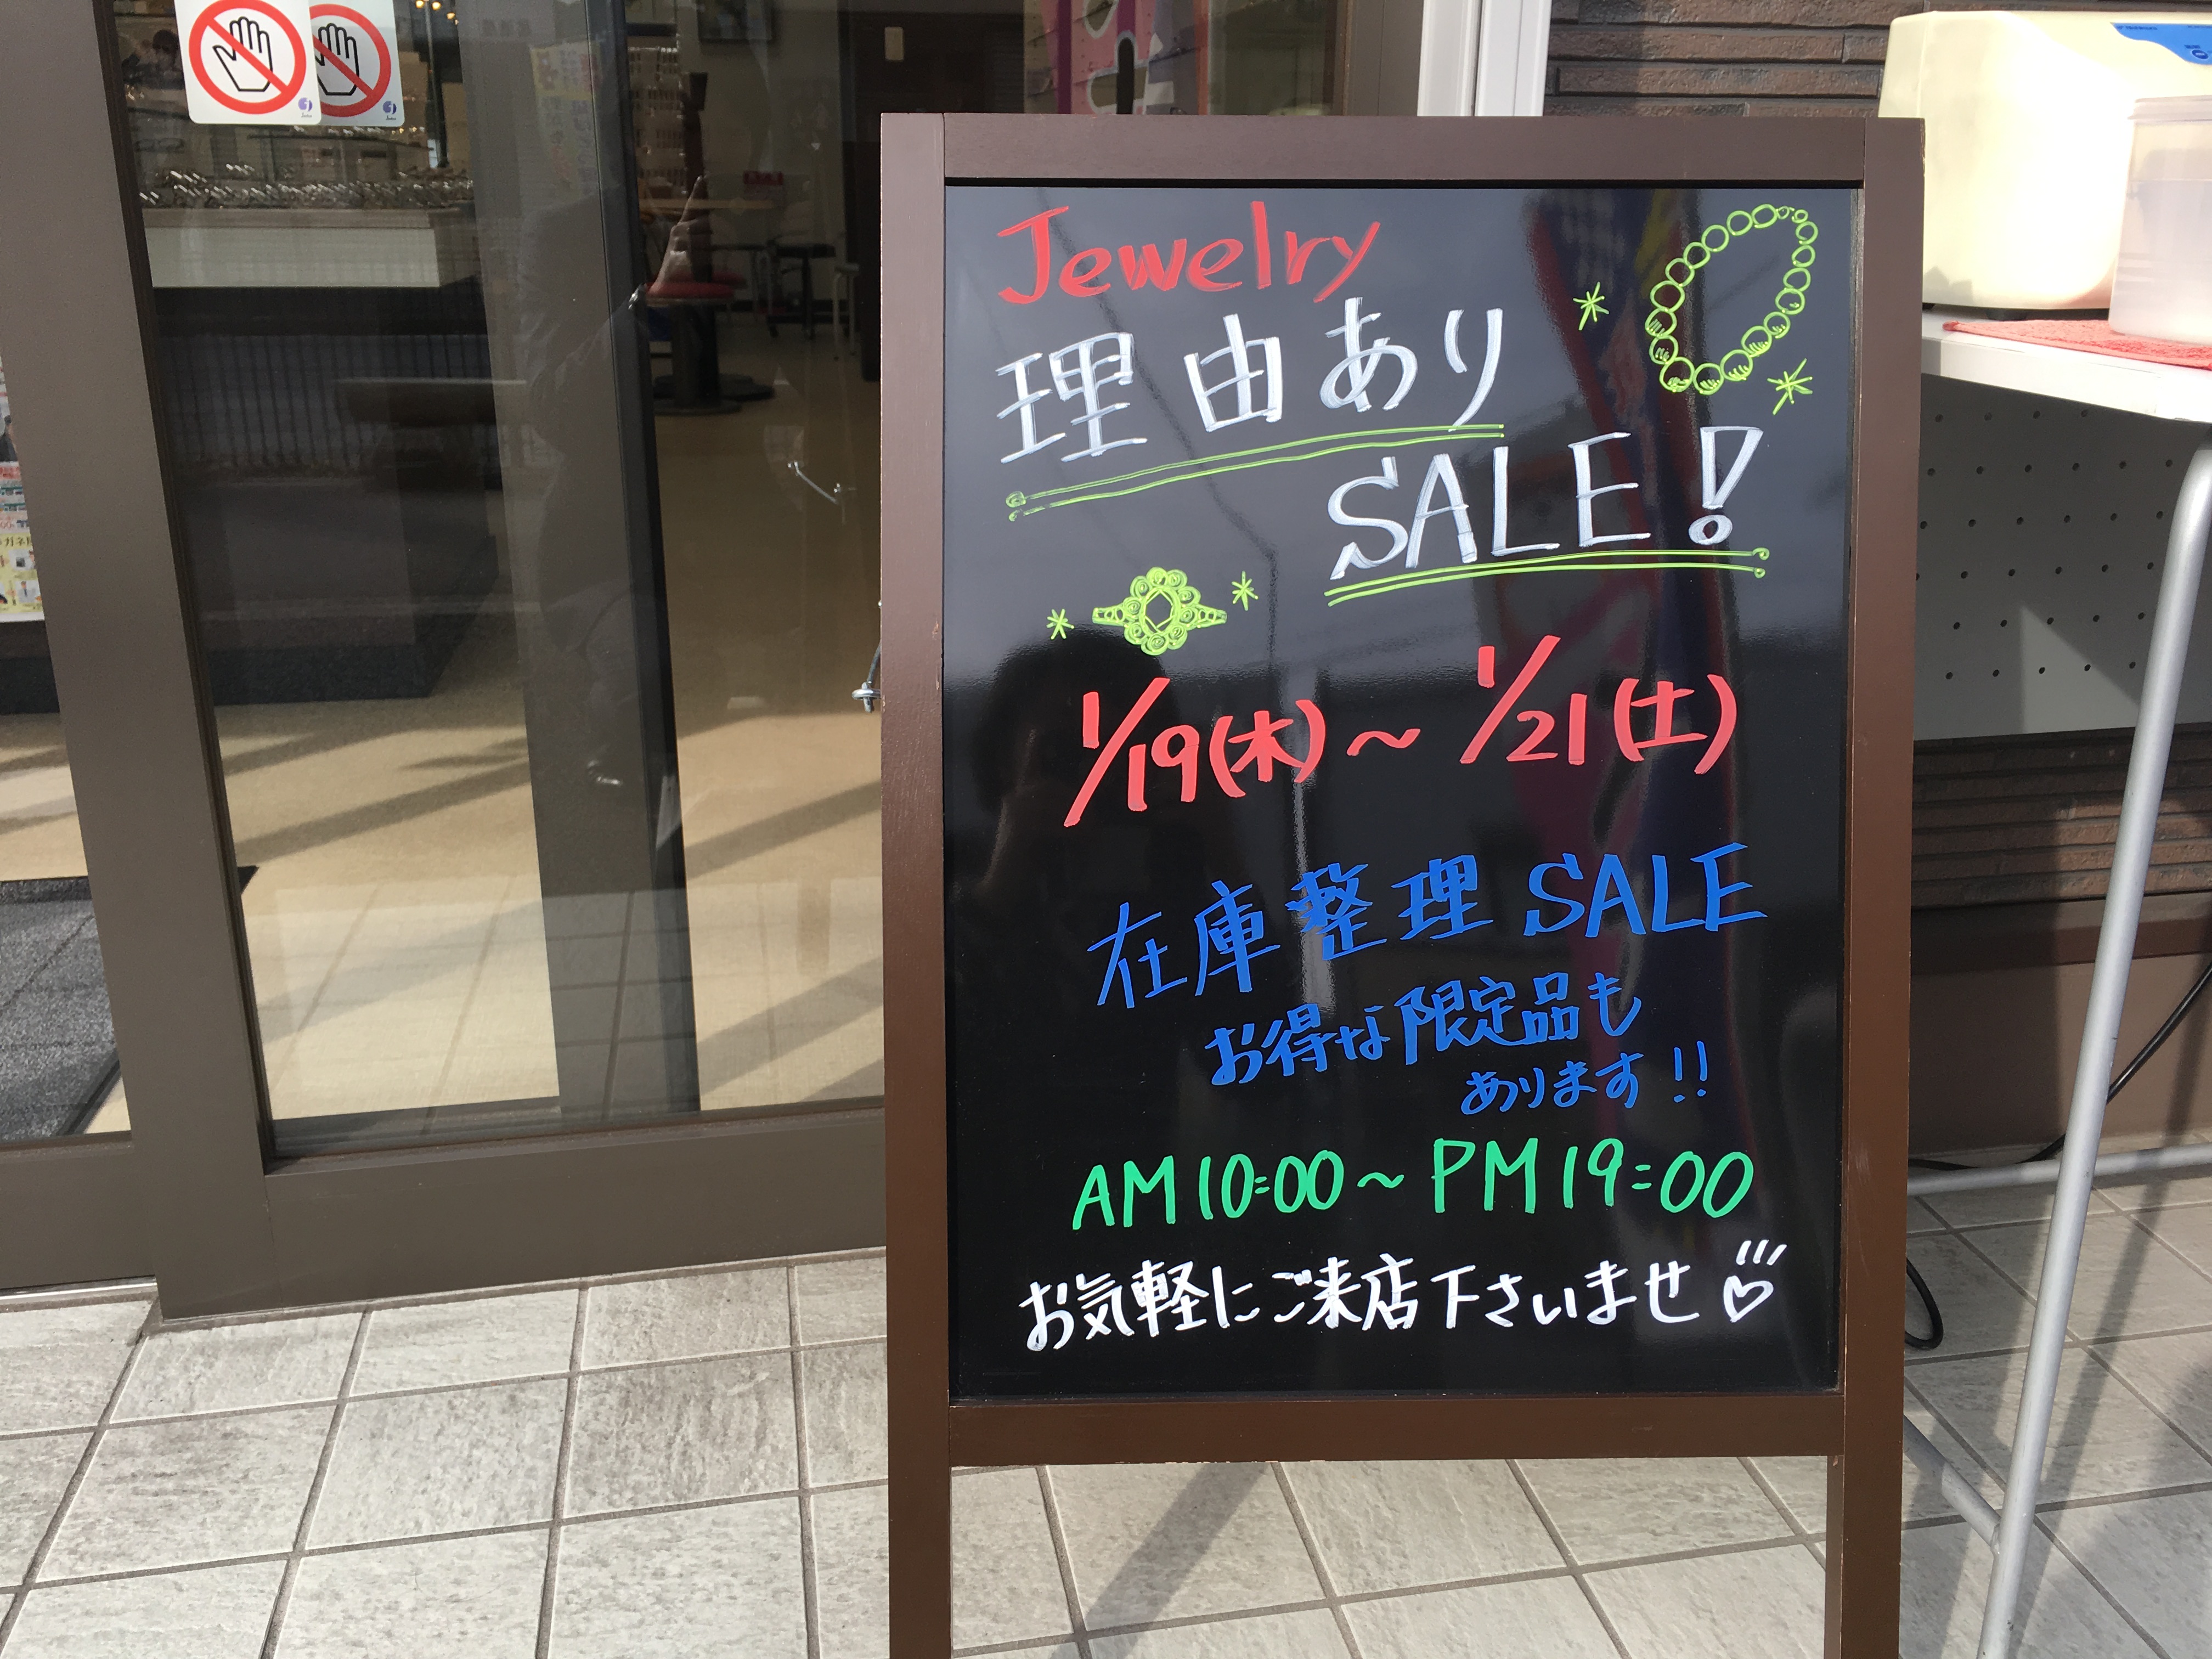 Jewelry
理由あり
SALE!
1/19(木)～1/21(土)
在庫整理SALE
お得な限定品も
あります!!
AM10:00～PM19:00
お気軽にご来店下さいませ♡